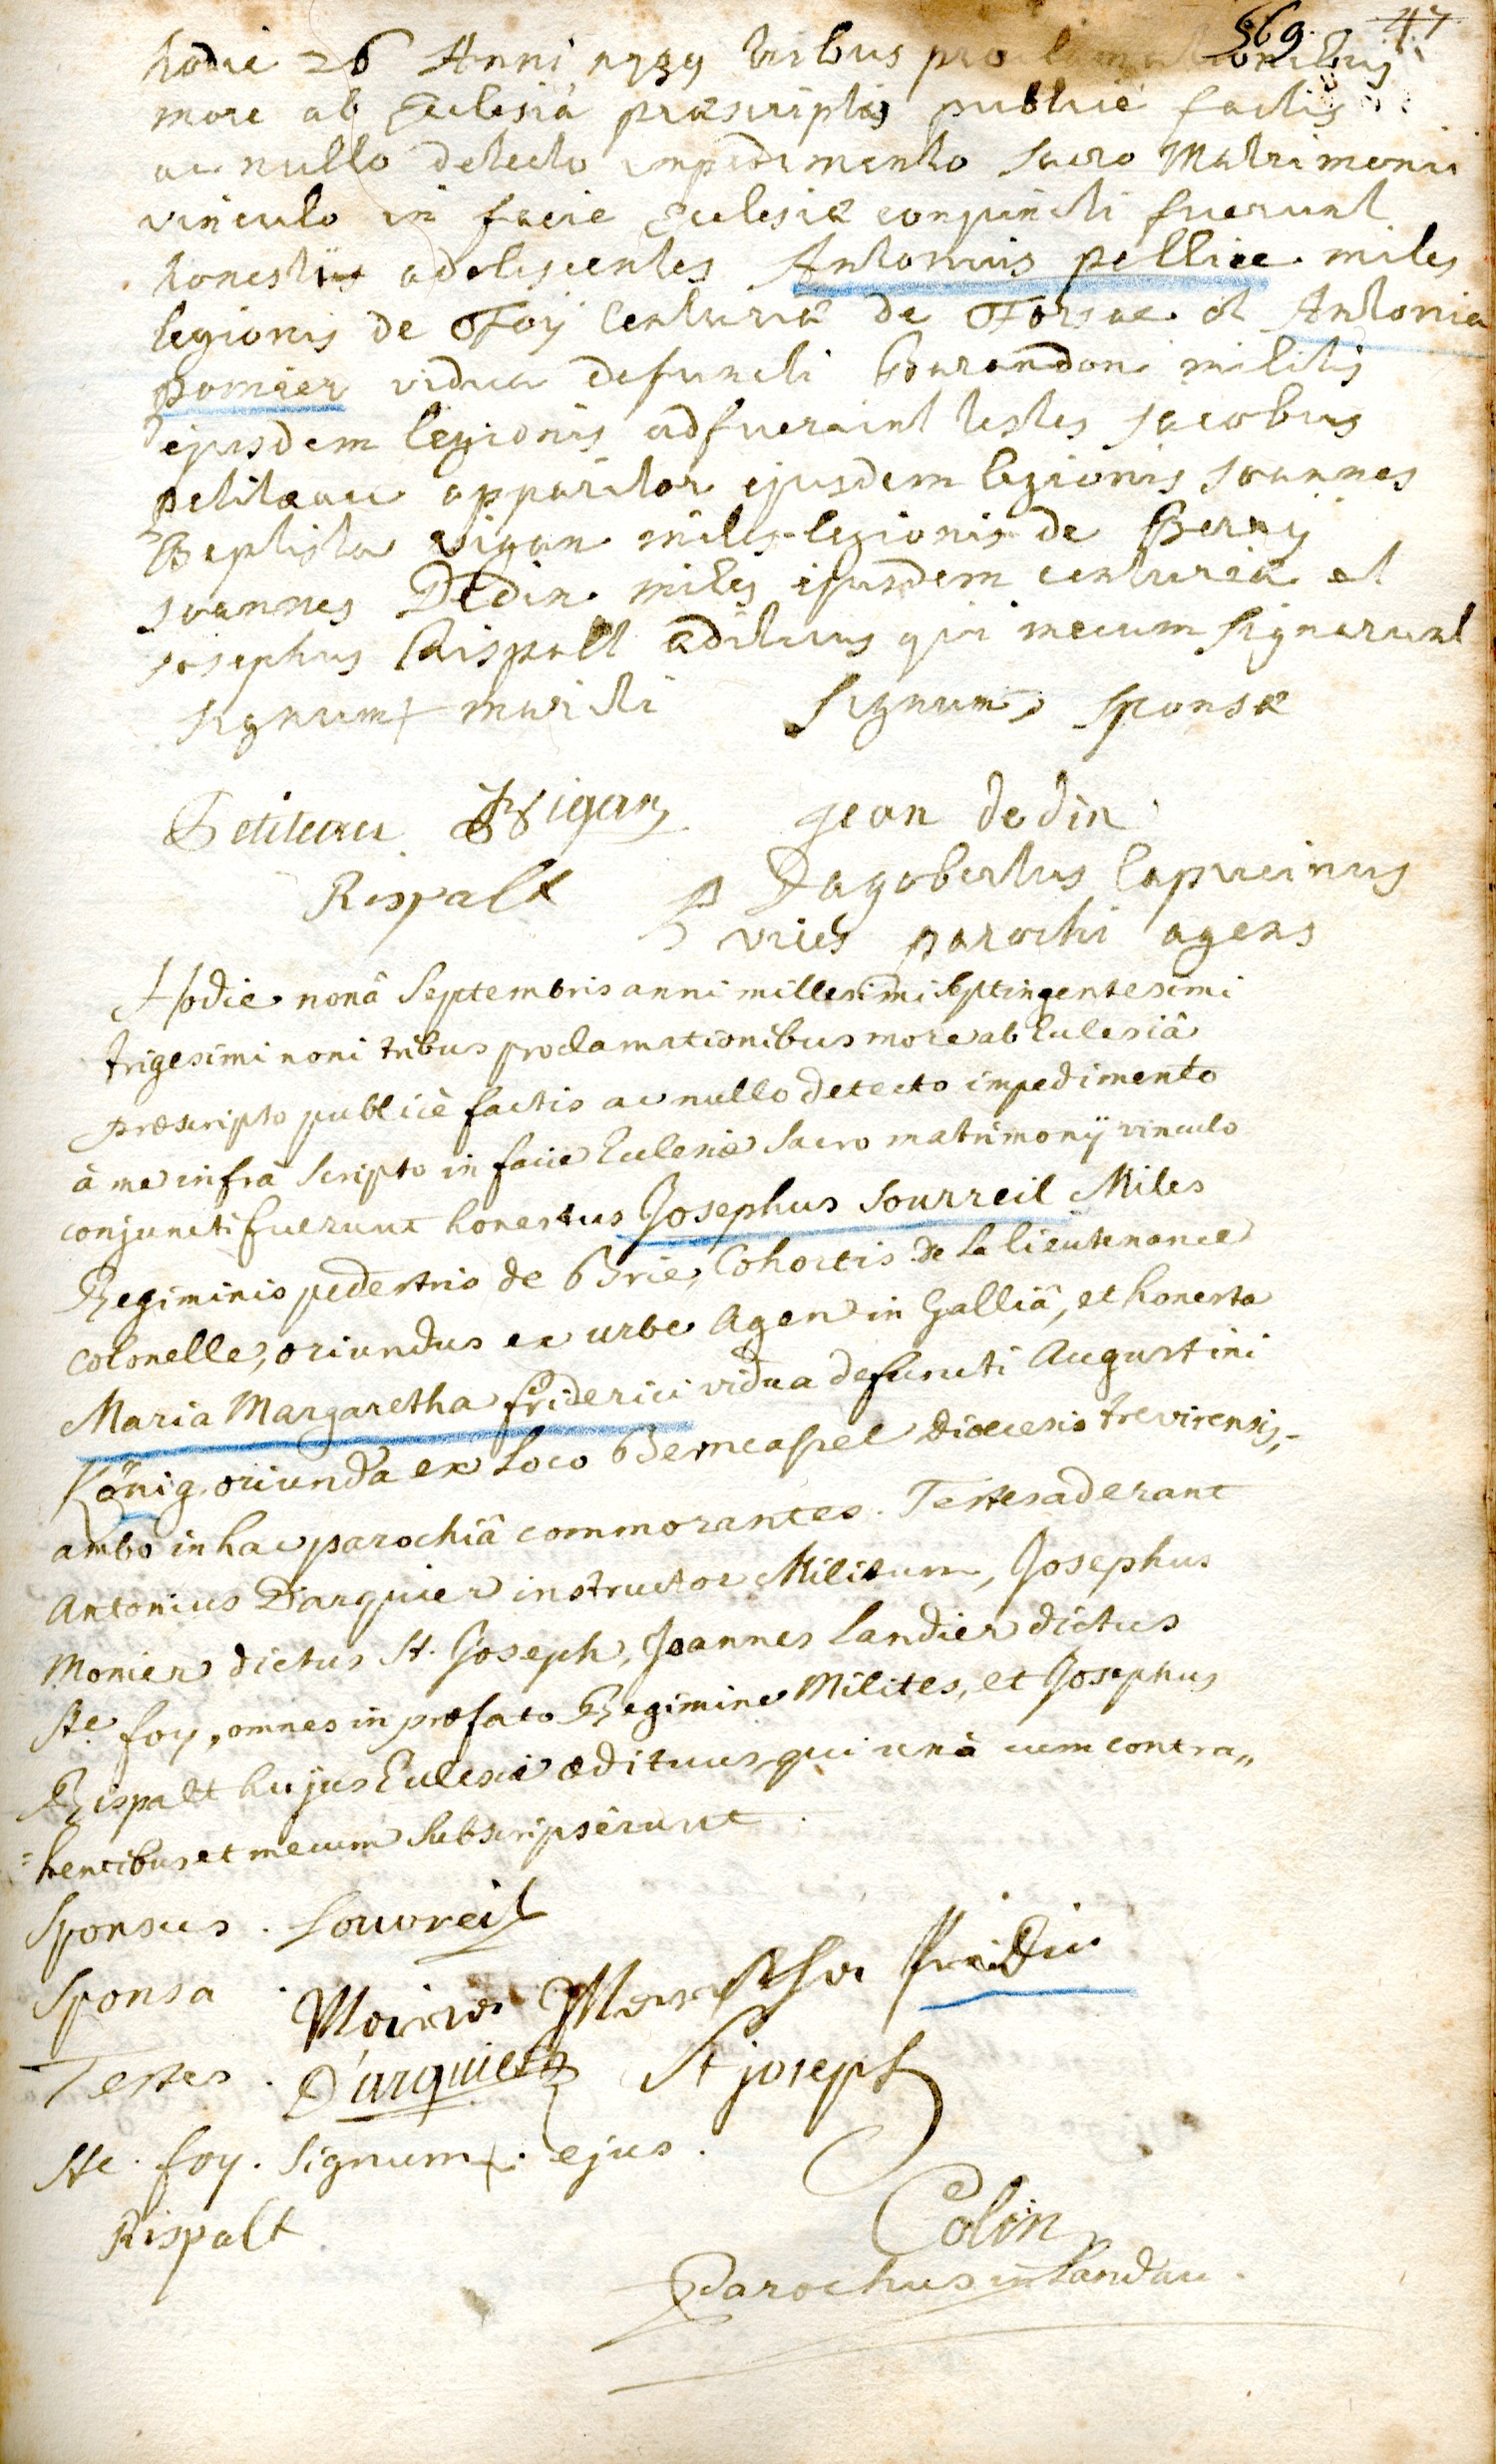 569. 47
hodie 26 Anni 1739 tribus proclamationibus
more ab Ecclesiâ præscripto publicè factis
ac nullo detecto impedimento sacro Matrimonii
vinculo in facie Ecclesiæ conjuncti fuerunt
honesti adolescentes Antonius pellice miles
legionis de Foy Centuriæ de Forsac et Antonia
pomier vidua defuncti Bourandon militis
ejusdem legionis adfuerunt testes Jacobus
petiteau apparitor ejusdem legionis Joannes
Baptista Vigan miles legionis de Berry
Joannes Dedin miles ejusdem centuriæ et
Josephus Rispalt ædituus qui mecum signarunt
signum + mariti signum + sponsæ
Petiteau JBVigan jean dedin
Rispalt P Dagobertus Capucinus
vices parochi agens
Hodie nonâ Septembris anni millesimi septingentesimi
trigesimi noni tribus proclamationibus more ab Ecclesiâ
præscripto publicè factis ac nullo detecto impedimento
à me infrà scripto in faciè Ecclesiæ Sacro matrimonÿ vinculo
conjuncti fuerunt honestus Josephus Sourreil Miles
Regiminis pedestris de Brie, Cohortis De la lieutenance
Colonelle, oriundus ex urbe Agen in Galliâ, et honesta
Maria Margaretha friderici vidua defuncti Augustini
König oriunda ex Loco Berncassel Dioecesis trevirensis,
ambo in hac parochiâ commorantes. Testes aderant
Antonius Darquier instructor Militum, Josephus
Monier dictus St. Joseph, Joannes Landier dictus
Ste. foy, omnes in præfato Regimine Milites, et Josephus
Rispalt hujus Ecclesiæ ædituus, qui unà cum contra„
=hentibus et mecum Subscripsêrunt
Sponsus. Souoreil
Sponsa.
Testes. D'arquier St joseph
Ste. foy. Signum + ejus.
Rispalt Colin
Parochus in Landau.